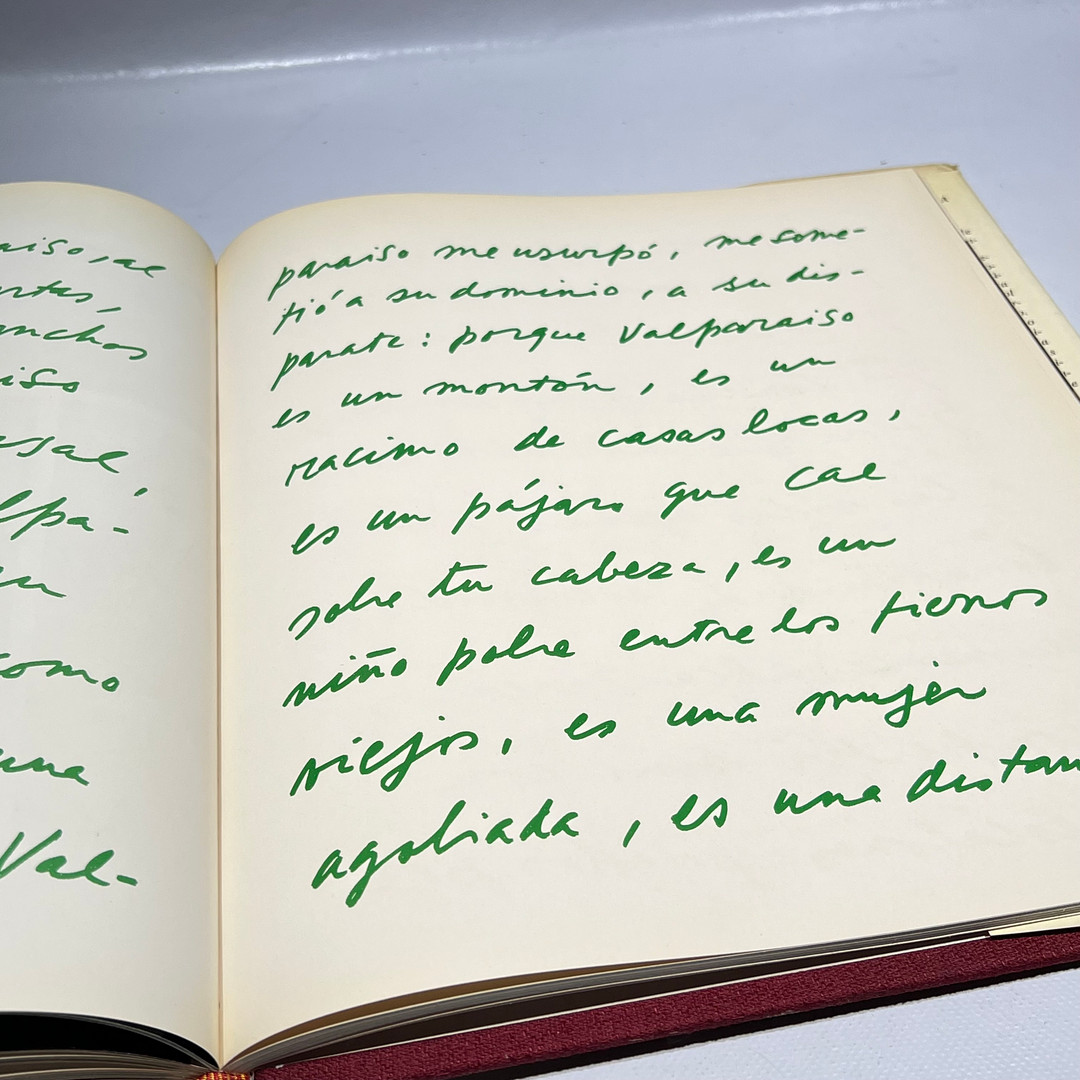 aiso, al
rtas,
anchos
iso
rsal,
lpa-
en
como
una
Val-
paraiso me usurpó, me some-
tió a su dominio, a su dis-
parate: porque Valparaiso
es un montón, es un
racimo de casas locas,
es un pájaro que cae
sobre tu cabeza, es un
niño pobre entre los tiernos
viejos, es una mujer
agobiada, es una distan